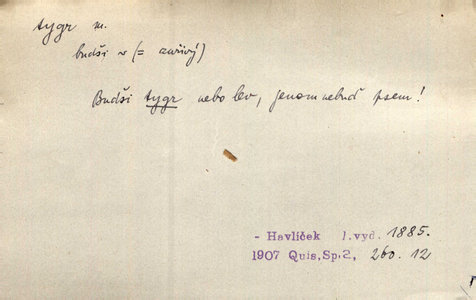 tygr m.
buďsi ~ (= zuřivý)
Buďsi tygr nebo lev, jenom nebuď psem!
- Havlíček 1.vyd. 1885.
1907 Quis,Sp.2, 260.12